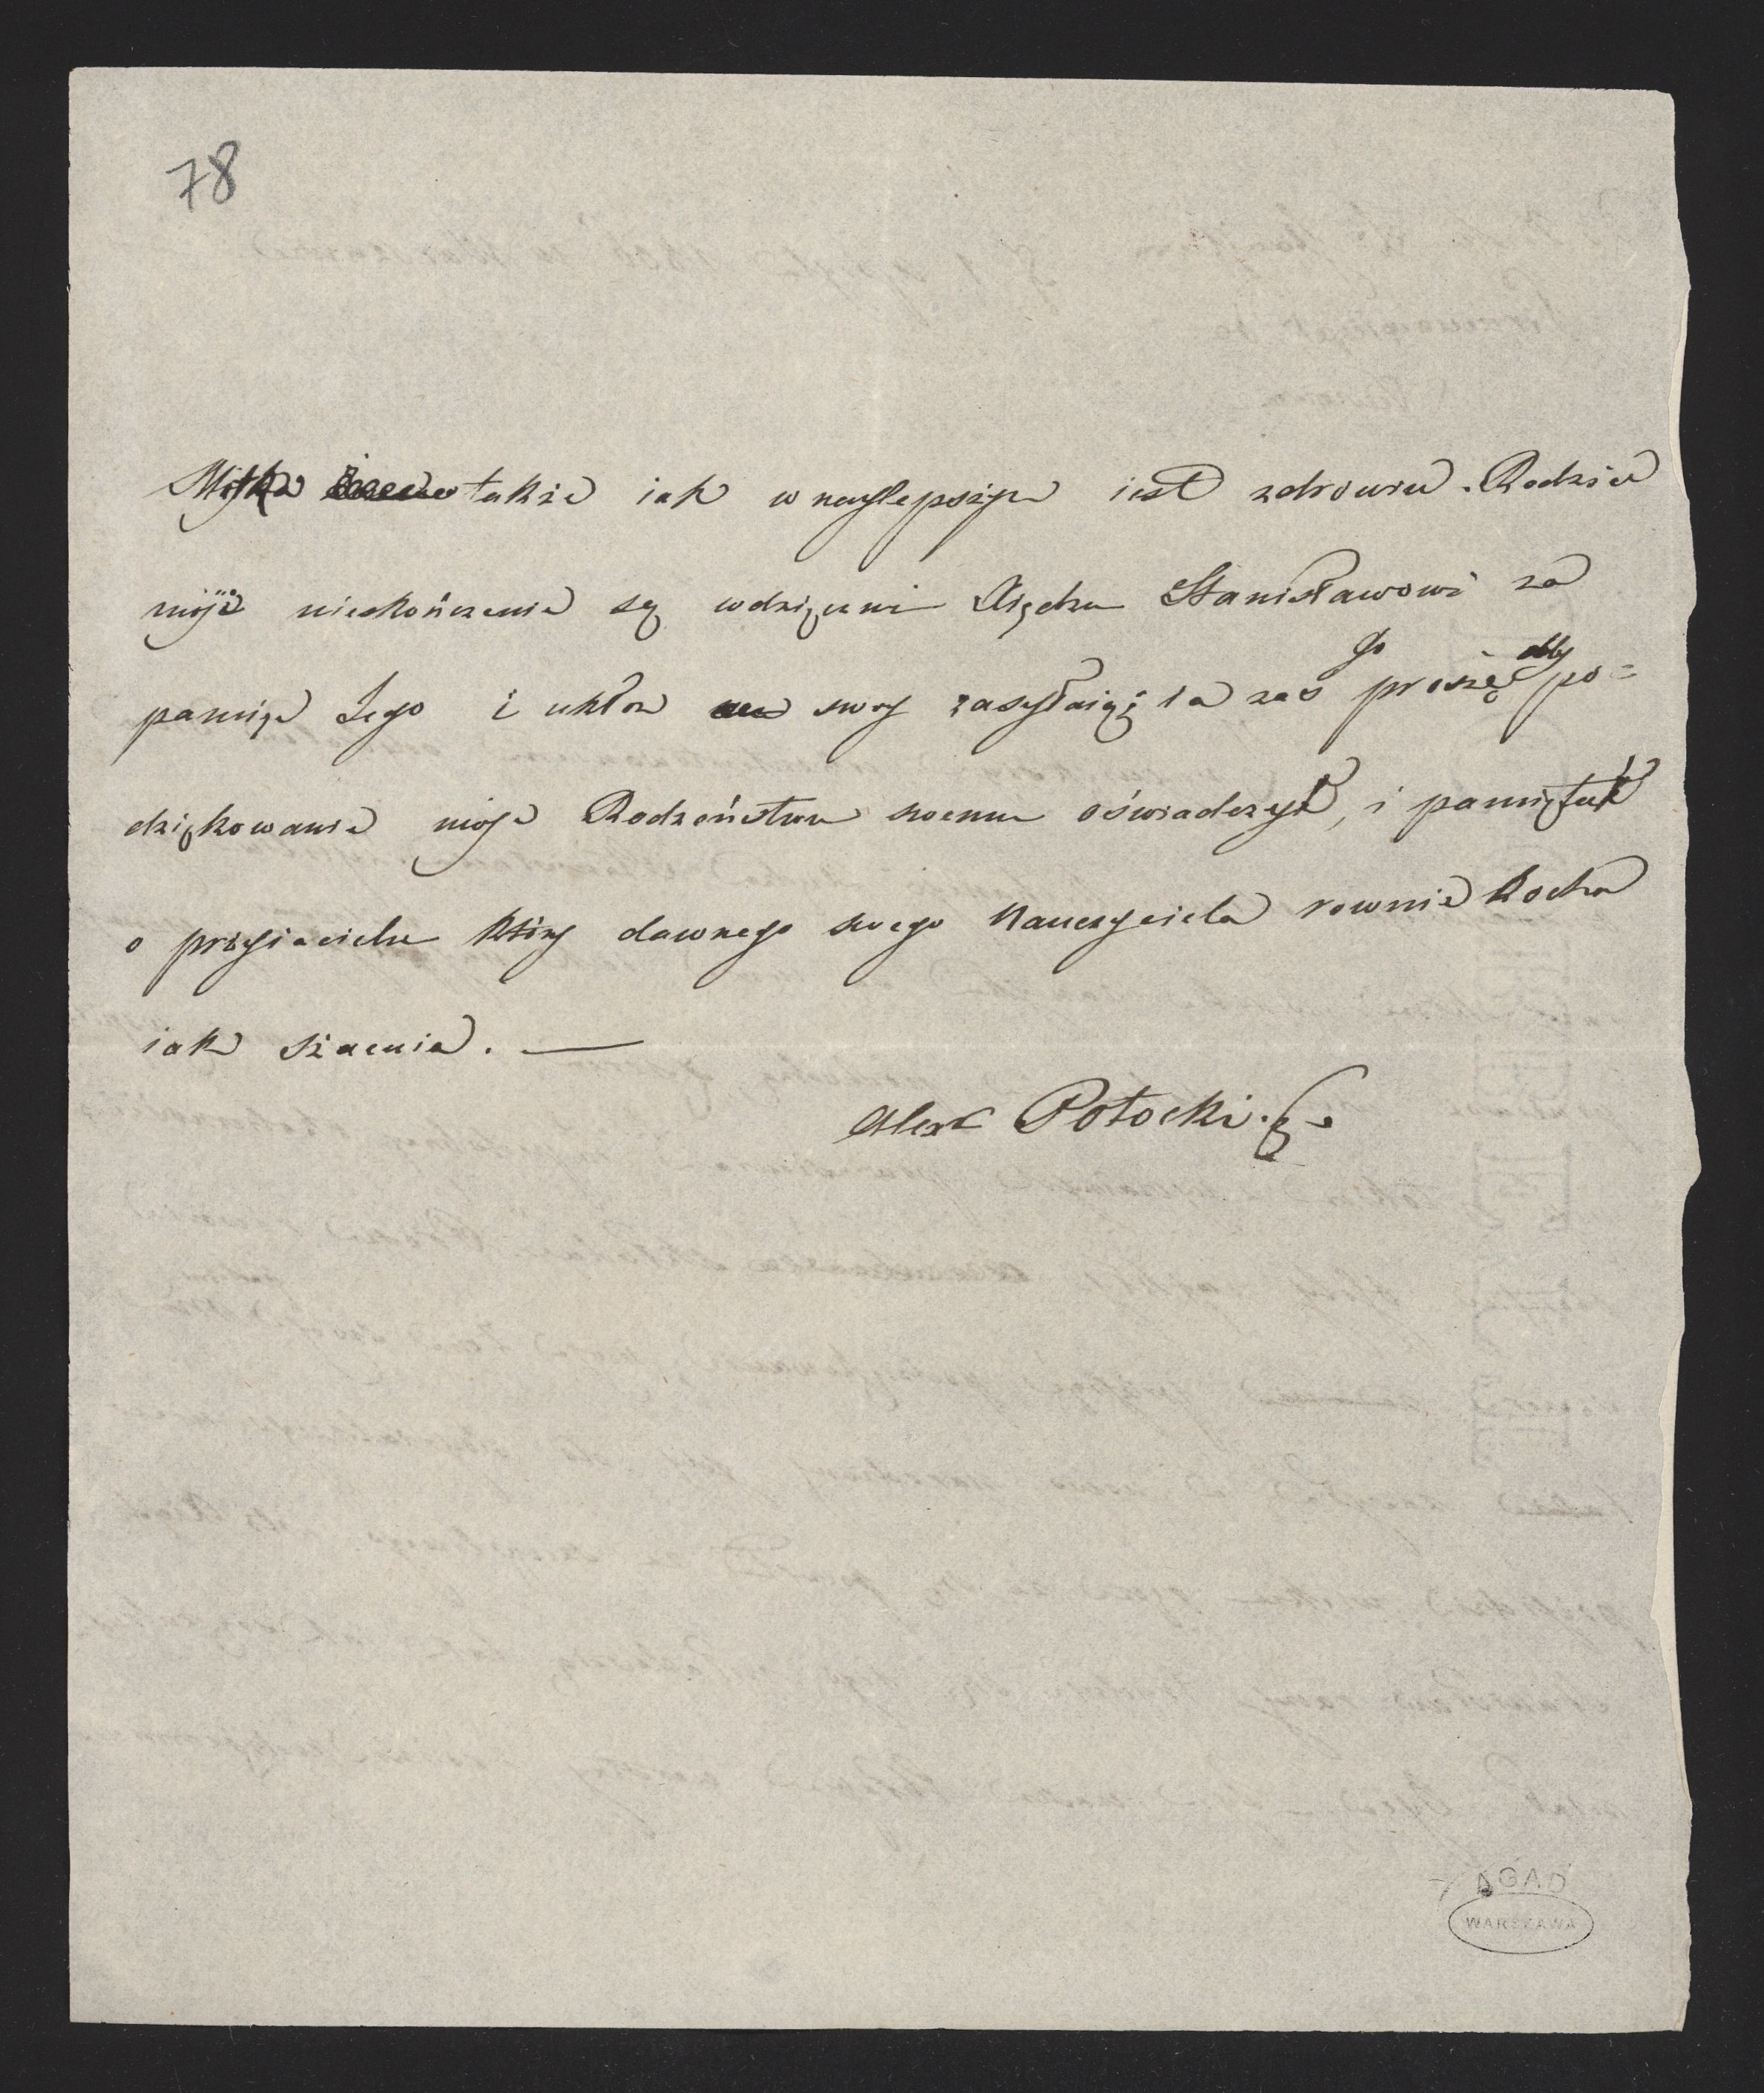 78
także iak w naylepszym iest zdrowiu. Rodzice
moje nieskończenie są wdzięczni Xiędzu Stanisławowi za
pamięć Jego i ukłon swoy zasyłaią; ia zas Go proszę aby po=
dziękowanie moje Rodzeństwu swemu oświadczył, i pamiętał
o przyiacielu który dawnego swego Nauczyciela rownie Kocha
iak szacuie. —
Alexr Potocki.
AGAD
WARSZAWA